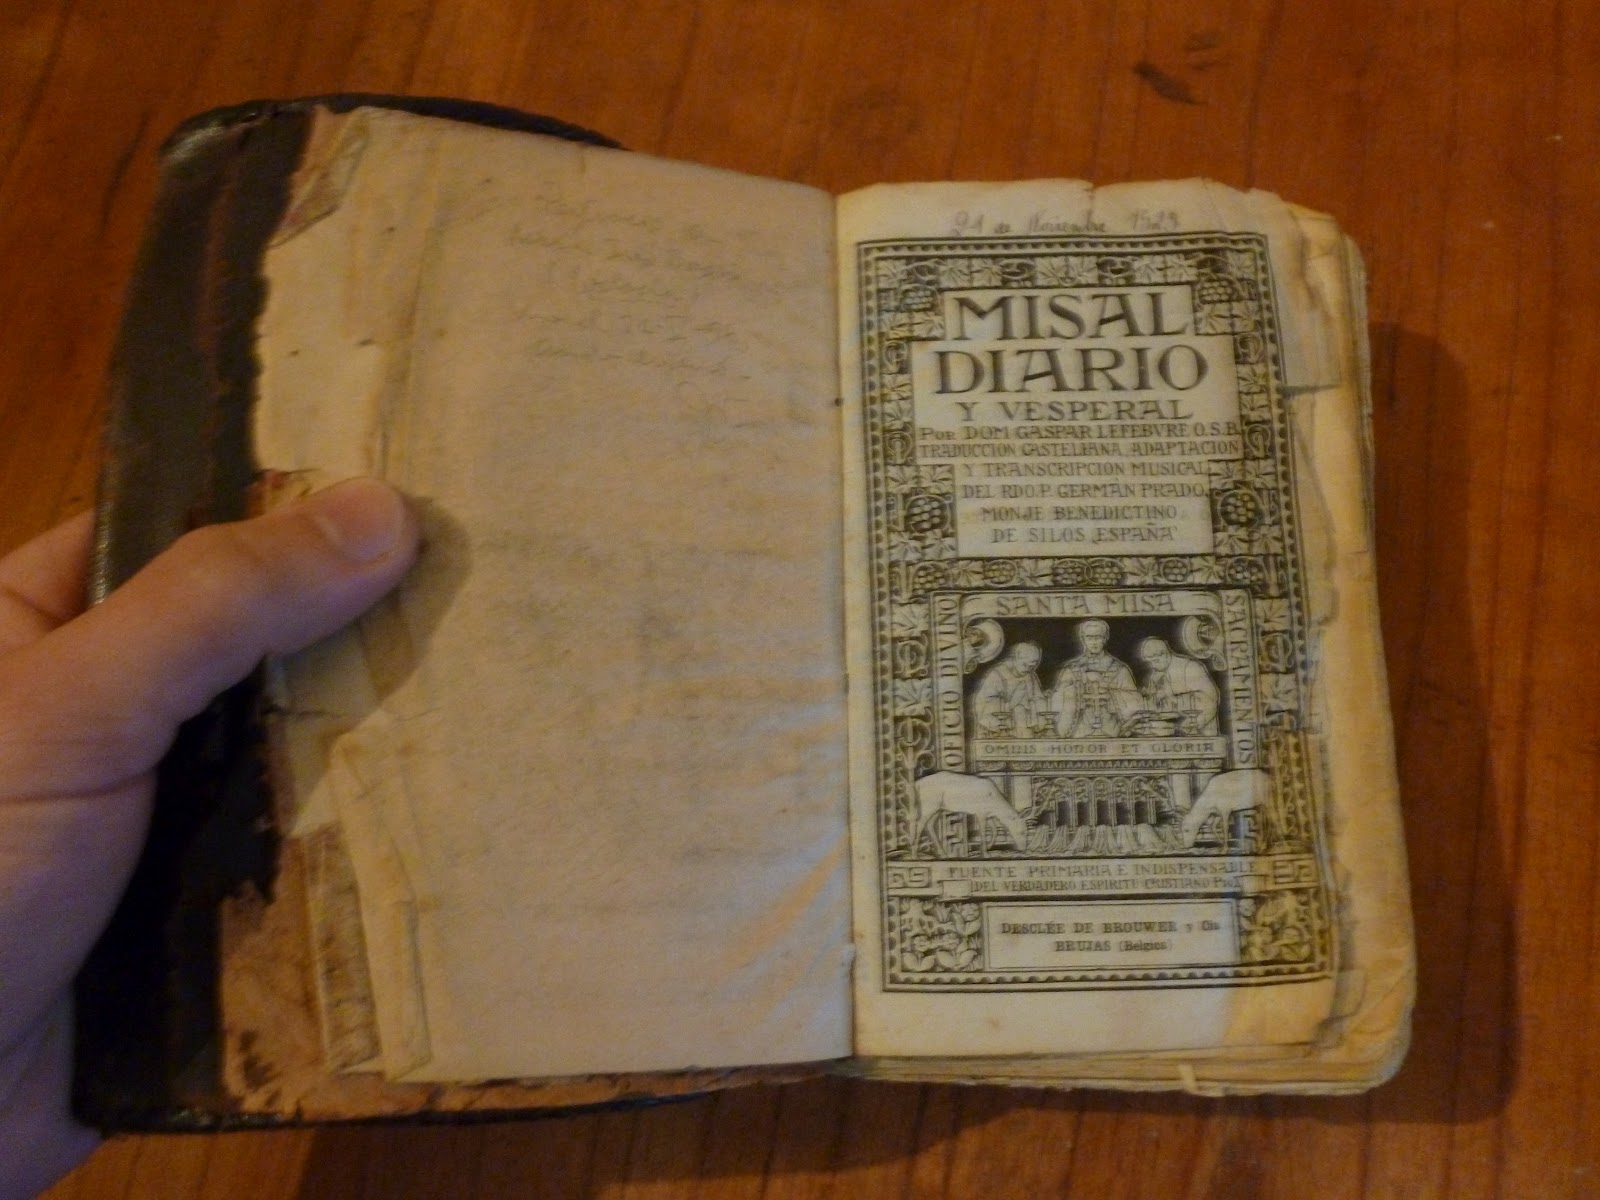 21 de Noviembre 1929
MISAL
DIARIO
Y VESPERAL
POR DOM GASPAR LEFEBVRE O.S.B.
TRADUCCION CASTELLANA, ADAPTACION
Y TRANSCRIPCION MUSICAL
DEL RDO. P. GERMÁN PRADO,
MONJE BENEDICTINO
DE SILOS, ESPAÑA
SANTA MISA
OFICIO DIVINO
SACRAMENTOS
OMNIS HONOR ET GLORIA
FUENTE PRIMARIA E INDISPENSABLE
DEL VERDADERO ESPIRITU CRISTIANO PIO X
DESCLÉE DE BROUWER y Cía
BRUJAS (Bélgica)